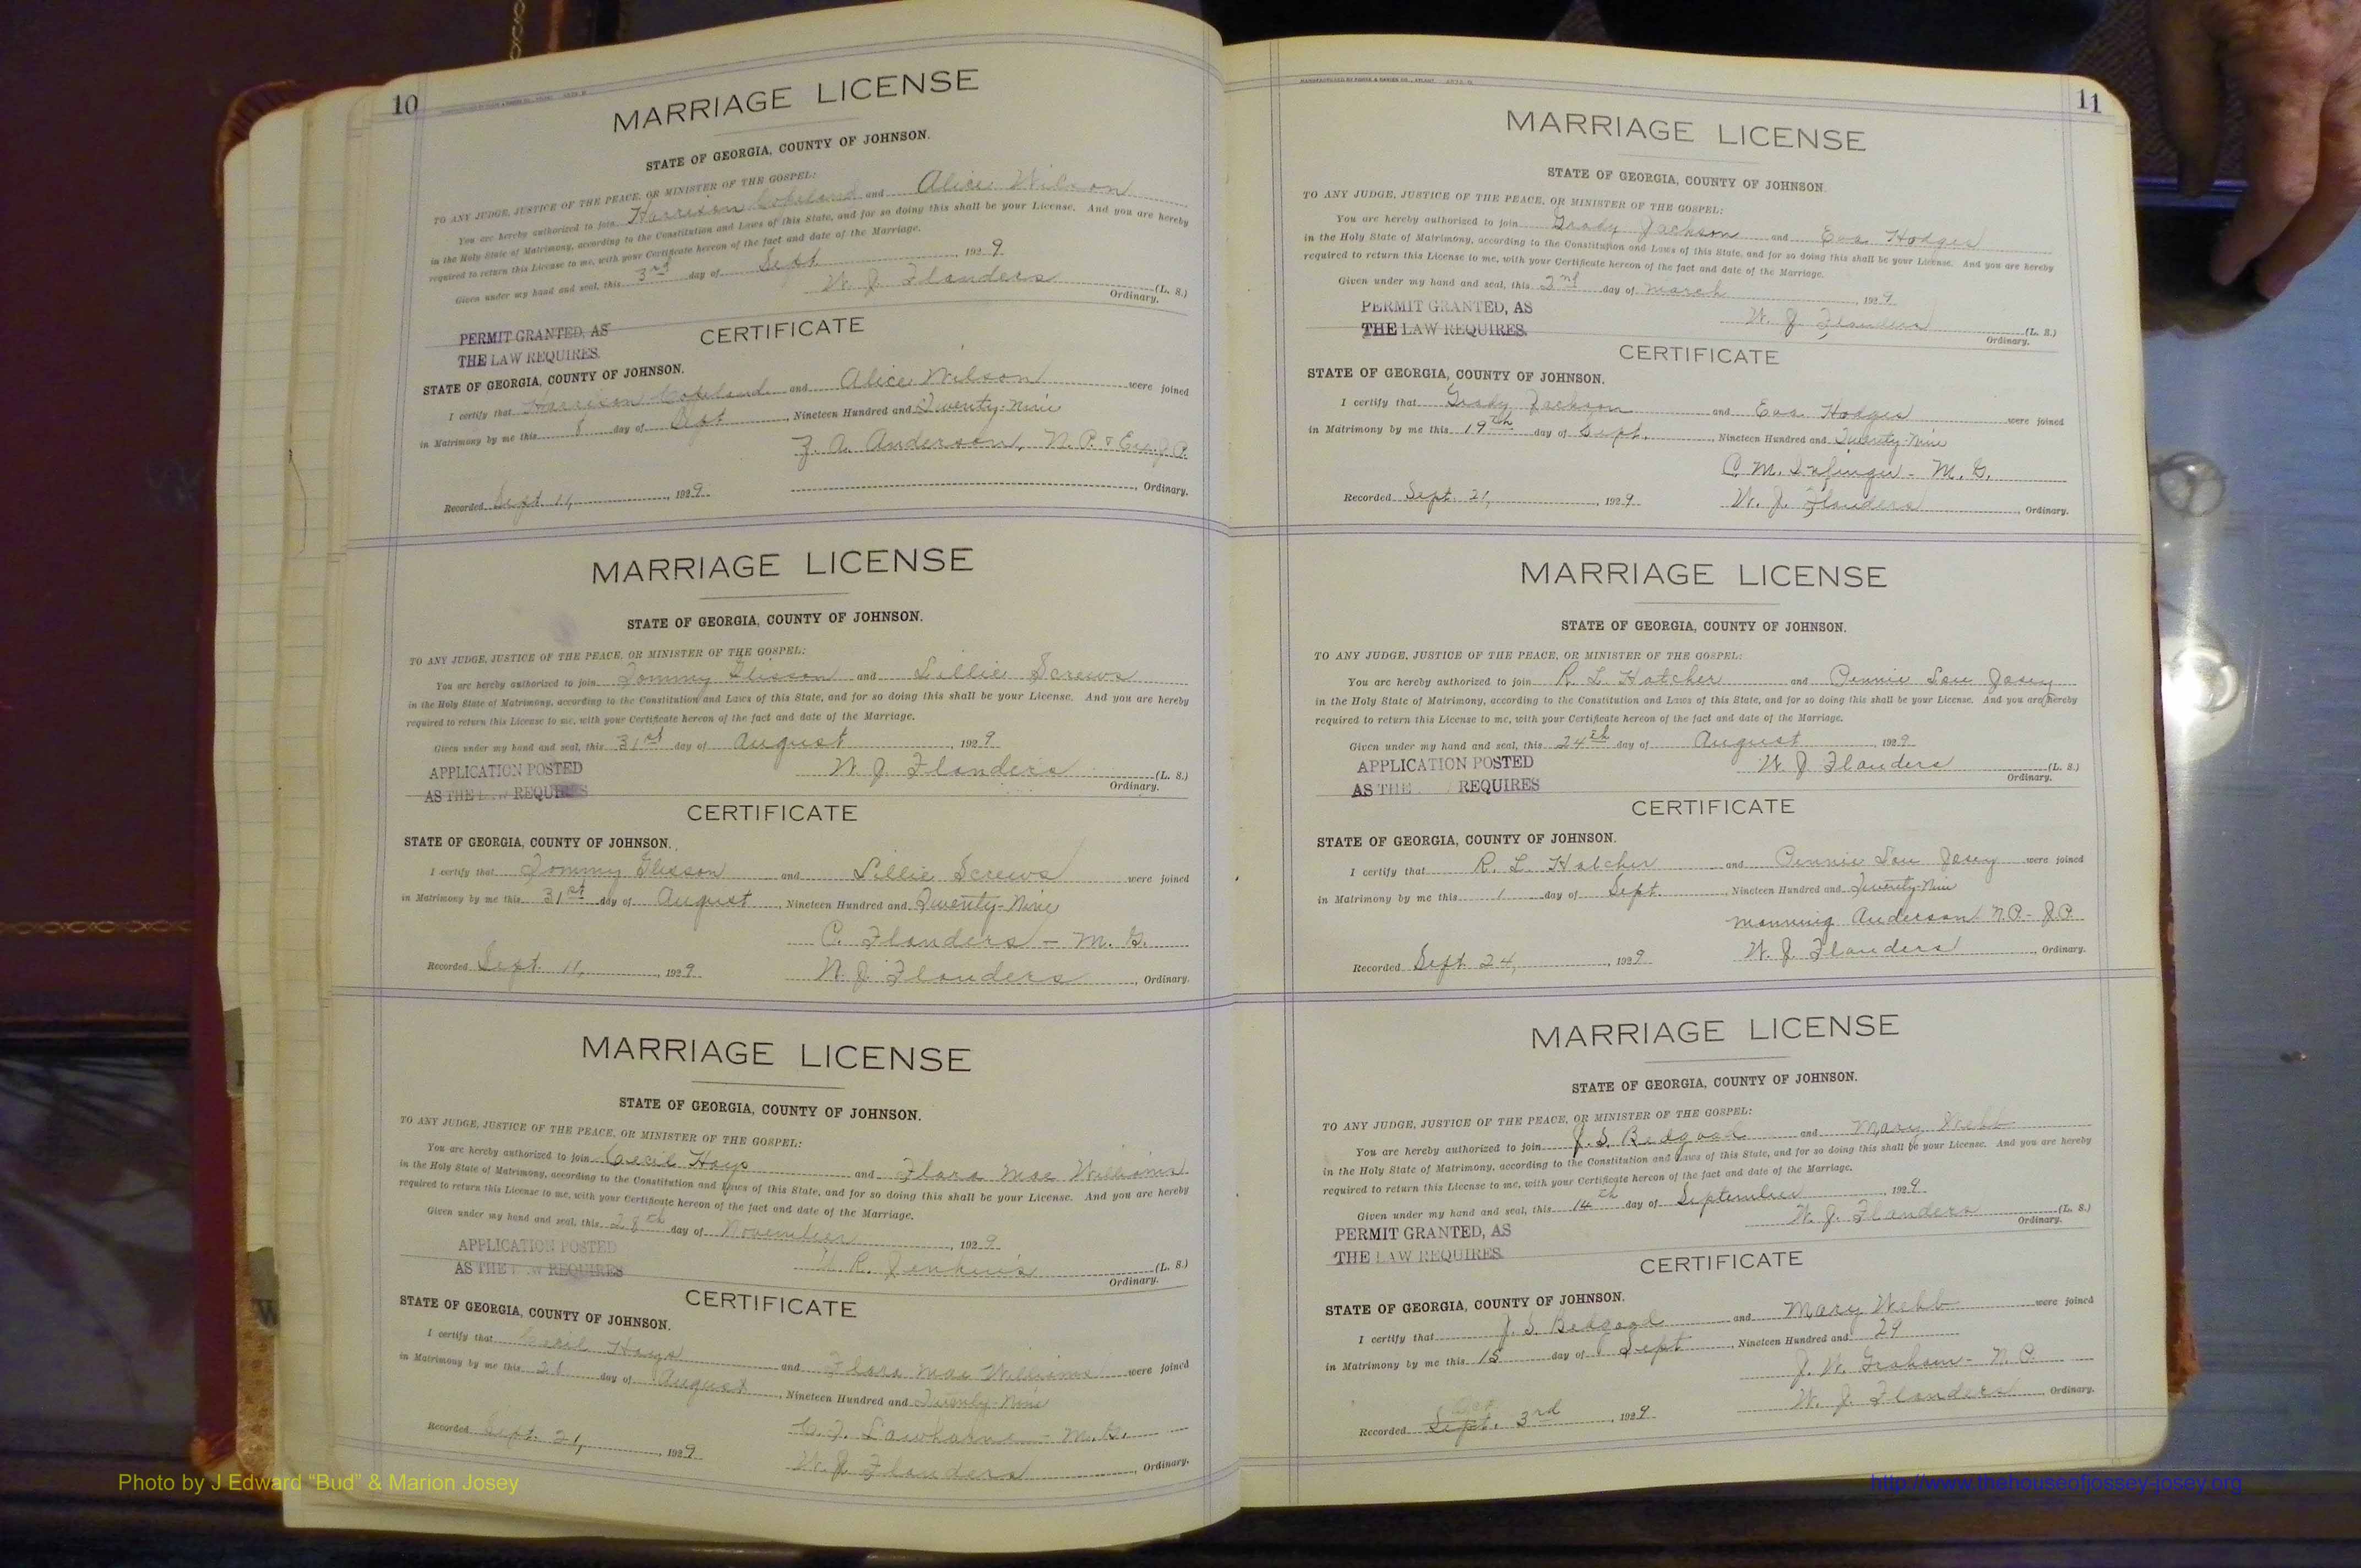 10
MARRIAGE LICENSE
STATE OF GEORGIA, COUNTY OF JOHNSON.
TO ANY JUDGE, JUSTICE OF THE PEACE, OR MINISTER OF THE GOSPEL:
You are hereby authorized to join Harrison Copeland and Alice Wilson
in the Holy State of Matrimony, according to the Constitution and Laws of this State, and for so doing this shall be your License. And you are hereby
required to return this License to me, with your Certificate hereon of the fact and date of the Marriage.
Given under my hand and seal, this 3rd day of Sept, 1929
W. J. Flanders (L. S.)
Ordinary.
PERMIT GRANTED, AS
THE LAW REQUIRES.
CERTIFICATE
STATE OF GEORGIA, COUNTY OF JOHNSON.
I certify that Harrison Copeland and Alice Wilson were joined
in Matrimony by me this 8 day of Sept, Nineteen Hundred and Twenty-Nine
A. Anderson, N. P. &
Recorded Sept 11, 1929. , Ordinary.
MARRIAGE LICENSE
STATE OF GEORGIA, COUNTY OF JOHNSON.
TO ANY JUDGE, JUSTICE OF THE PEACE, OR MINISTER OF THE GOSPEL:
You are hereby authorized to join Tommy Glisson and Lillie Screws
in the Holy State of Matrimony, according to the Constitution and Laws of this State, and for so doing this shall be your License. And you are hereby
required to return this License to me, with your Certificate hereon of the fact and date of the Marriage.
Given under my hand and seal, this 31st day of August, 1929
W. J. Flanders (L. S.)
Ordinary.
APPLICATION POSTED
AS THE LAW REQUIRES
CERTIFICATE
STATE OF GEORGIA, COUNTY OF JOHNSON.
I certify that Tommy Glisson and Lillie Screws were joined
in Matrimony by me this 31st day of August, Nineteen Hundred and Twenty-Nine
C. Flanders - M. G.
Recorded Sept. 11, 1929. W. J. Flanders, Ordinary.
MARRIAGE LICENSE
STATE OF GEORGIA, COUNTY OF JOHNSON.
TO ANY JUDGE, JUSTICE OF THE PEACE, OR MINISTER OF THE GOSPEL:
You are hereby authorized to join Cecil Hays and Flora Mae Williams
in the Holy State of Matrimony, according to the Constitution and Laws of this State, and for so doing this shall be your License. And you are hereby
required to return this License to me, with your Certificate hereon of the fact and date of the Marriage.
Given under my hand and seal, this 28th day of November, 1929
R. Jenkins (L. S.)
Ordinary.
APPLICATION POSTED
AS THE LAW REQUIRES
CERTIFICATE
STATE OF GEORGIA, COUNTY OF JOHNSON.
I certify that Cecil Hays and Flora Mae Williams were joined
in Matrimony by me this 28 day of August, Nineteen Hundred and Twenty-Nine
- M. G.
Recorded Sept. 21, 1929 W. J. Flanders, Ordinary.
11
MARRIAGE LICENSE
STATE OF GEORGIA, COUNTY OF JOHNSON.
TO ANY JUDGE, JUSTICE OF THE PEACE, OR MINISTER OF THE GOSPEL:
You are hereby authorized to join Grady Jackson and Eva Hodges
in the Holy State of Matrimony, according to the Constitution and Laws of this State, and for so doing this shall be your License. And you are hereby
required to return this License to me, with your Certificate hereon of the fact and date of the Marriage.
Given under my hand and seal, this 2nd day of March, 1929
W. J. Flanders (L. S.)
Ordinary.
PERMIT GRANTED, AS
THE LAW REQUIRES.
CERTIFICATE
STATE OF GEORGIA, COUNTY OF JOHNSON.
I certify that Grady Jackson and Eva Hodges were joined
in Matrimony by me this 19th day of Sept., Nineteen Hundred and Twenty-Nine
C. M. - M. G.
Recorded Sept. 21, 1929. W. J. Flanders, Ordinary.
MARRIAGE LICENSE
STATE OF GEORGIA, COUNTY OF JOHNSON.
TO ANY JUDGE, JUSTICE OF THE PEACE, OR MINISTER OF THE GOSPEL:
You are hereby authorized to join R. L. Hatcher and Pennie Lou Josey
in the Holy State of Matrimony, according to the Constitution and Laws of this State, and for so doing this shall be your License. And you are hereby
required to return this License to me, with your Certificate hereon of the fact and date of the Marriage.
Given under my hand and seal, this 24th day of August, 1929
W. J. Flanders (L. S.)
Ordinary.
APPLICATION POSTED
AS THE REQUIRES
CERTIFICATE
STATE OF GEORGIA, COUNTY OF JOHNSON.
I certify that R. L. Hatcher and Pennie Lou Josey were joined
in Matrimony by me this 1 day of Sept, Nineteen Hundred and Twenty-Nine
Manning Anderson N.P.- J.P.
Recorded Sept 24, 1929 W. J. Flanders, Ordinary.
MARRIAGE LICENSE
STATE OF GEORGIA, COUNTY OF JOHNSON.
TO ANY JUDGE, JUSTICE OF THE PEACE, OR MINISTER OF THE GOSPEL:
You are hereby authorized to join J. S. Bedgood and Mary Webb
in the Holy State of Matrimony, according to the Constitution and Laws of this State, and for so doing this shall be your License. And you are hereby
required to return this License to me, with your Certificate hereon of the fact and date of the Marriage.
Given under my hand and seal, this 14th day of September, 1929
W. J. Flanders (L. S.)
Ordinary.
PERMIT GRANTED, AS
THE LAW REQUIRES.
CERTIFICATE
STATE OF GEORGIA, COUNTY OF JOHNSON.
I certify that J. S. Bedgood and Mary Webb were joined
in Matrimony by me this 15 day of Sept, Nineteen Hundred and 29
J. W. Graham - N. P.
Recorded Sept. 3rd, 1929 W. J. Flanders, Ordinary.
Photo by J Edward “Bud” & Marion Josey
http://www.thehouseofjossey-josey.org